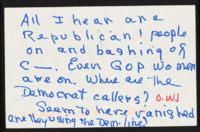 All I hear are
Republican people
on and bashing of
C—. Even GOP women
are on. Where are the
Democrat callers?
Seem to have vanished
are they using the Dem. line?